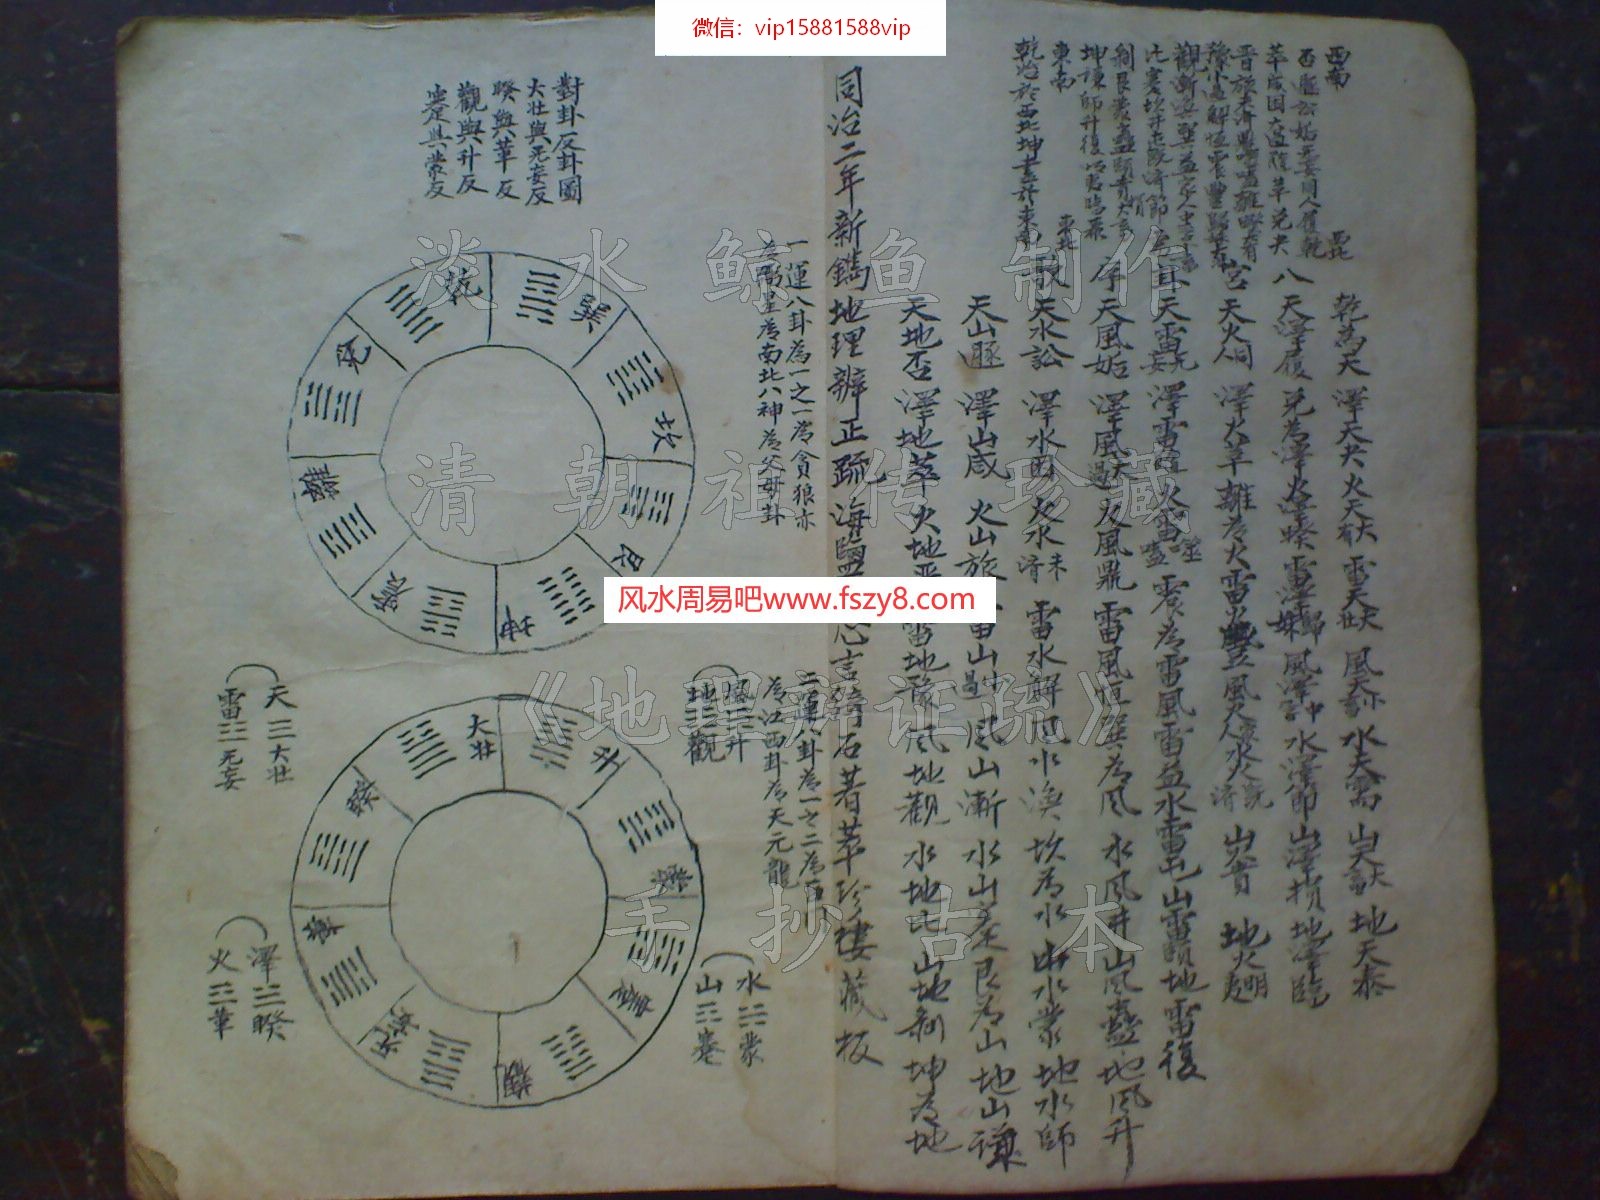 微信：vip15881588vip
西南
東南
東北
乾為天 澤天夬 火天大有 雷天大壯 風天小畜 水天需 山天大畜 地天泰
八
天澤履 兌為澤 火澤睽 雷澤歸妹 風澤中孚 水澤節 山澤損 地澤臨
宮
天火同人 澤火革 離為火 雷火豐 風火家人 水火既濟 山火賁 地火明夷
卦
天雷无妄 澤雷隨 火雷噬嗑 震為雷 風雷益 水雷屯 山雷頤 地雷復
序
天風姤 澤風大過 火風鼎 雷風恒 巽為風 水風井 山風蠱 地風升
歌
天水訟 澤水困 火水未濟 雷水解 風水渙 坎為水 山水蒙 地水師
天山遯 澤山咸 火山旅 雷山小過 風山漸 水山蹇 艮為山 地山謙
天地否 澤地萃 火地晋 雷地豫 風地觀 水地比 山地剝 坤為地
同治二年新鐫地理辨正疏 海鹽 心言綺石著 萃珍樓藏板
一運八卦為一之一為貪狼亦
為弼星為南北八神為父母卦
對卦反卦圖
大壯與无妄反
睽與革反
觀與升反
蹇與蒙反
乾
巽
坎
艮
坤
震
離
兌
二運八卦為一之二為巨門
為江西卦為天元龍
大壯
升
蒙
蹇
觀
无妄
革
睽
風☴升
地☷觀
天☰大壯
雷☳无妄
澤☱睽
火☲革
水☵蒙
山☶蹇
淡水鲸鱼制作
清朝祖传珍藏
风水周易吧www.fszy8.com
《地理辨证疏》
手抄古本